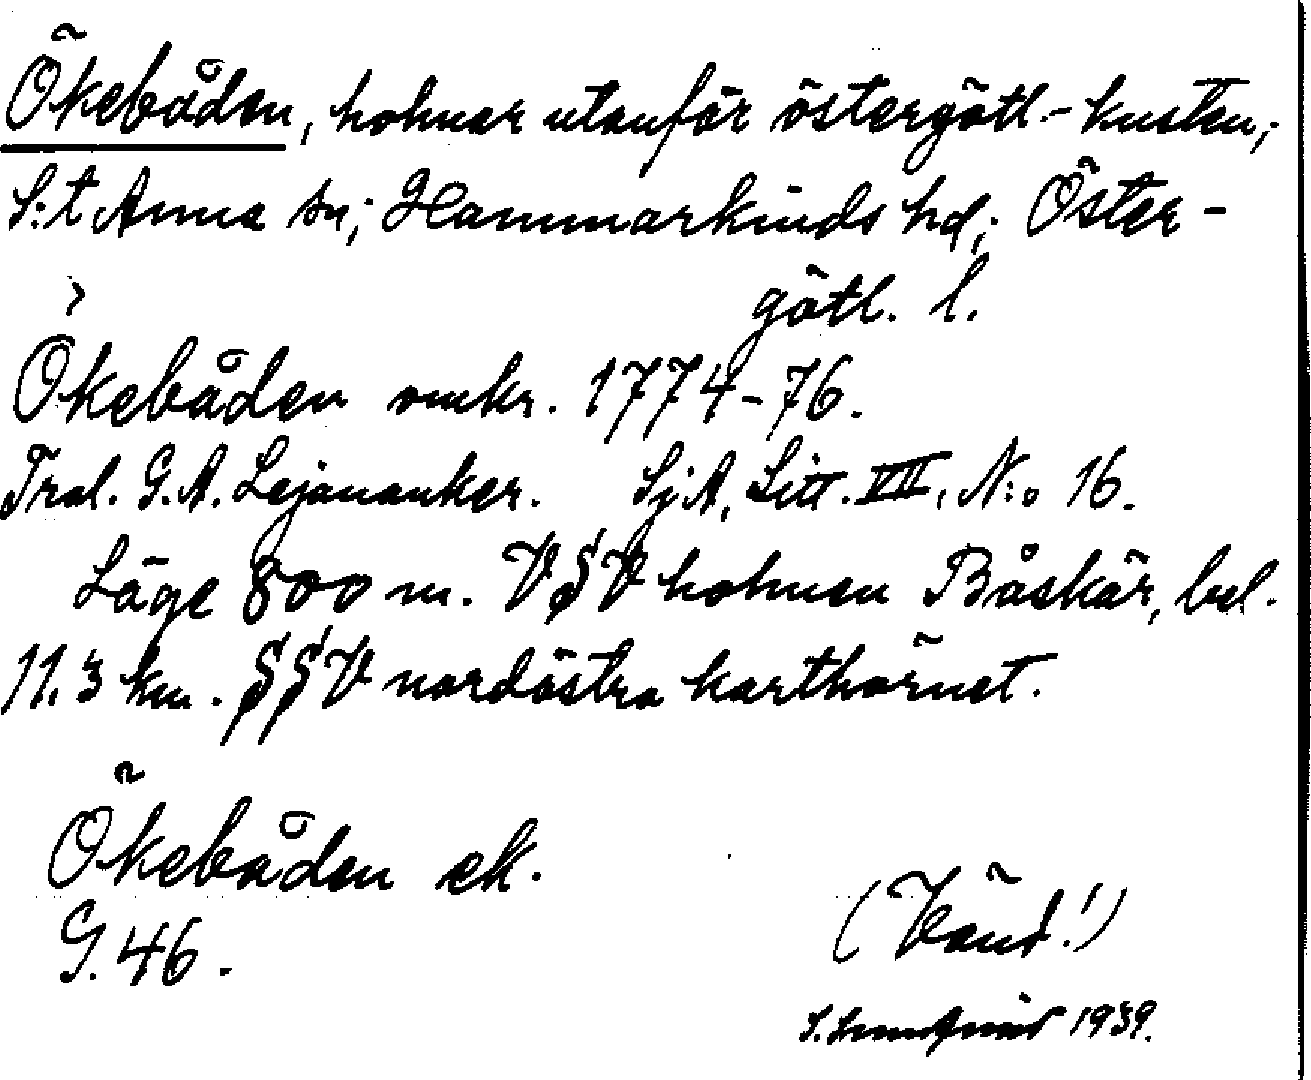 Ökebåden, holmar utanför östergötl.-kusten;
S:t Anna sn; Hammarkinds hd; Öster-
götl. l.
Ökebåden omkr. 1774-76.
Tral. G.A. Lejonanker. SjA, Litt. VII, N:o 16.
Läge 800 m. VSV holmen Båskär, bel.
11.3 km. SSV nordöstra karthörnet.
Ökebåden ek.
G. 46.
(Vänd!)
1939.